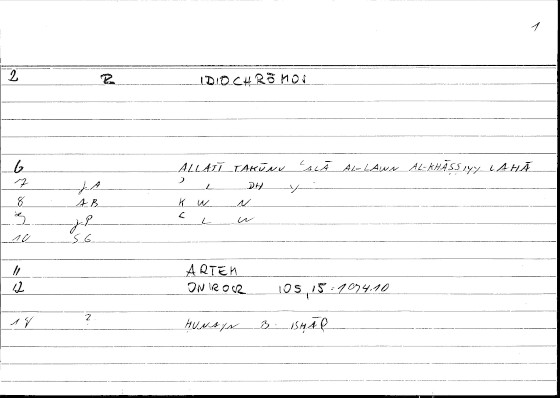 1
2 R IDIOCHRŌMOS
6 ALLATĪ TAKŪNU ʿALĀ AL-LAWN AL-KHĀṢṢIYY LAHĀ
7 JA ʾ L DH Y
8 AB K W N
9 JP ʿ L W
10 SG
11 ARTEM
12 ONIROCR 105,15 = 1074.10
18 ? HUNAYN B. ISHĀQ